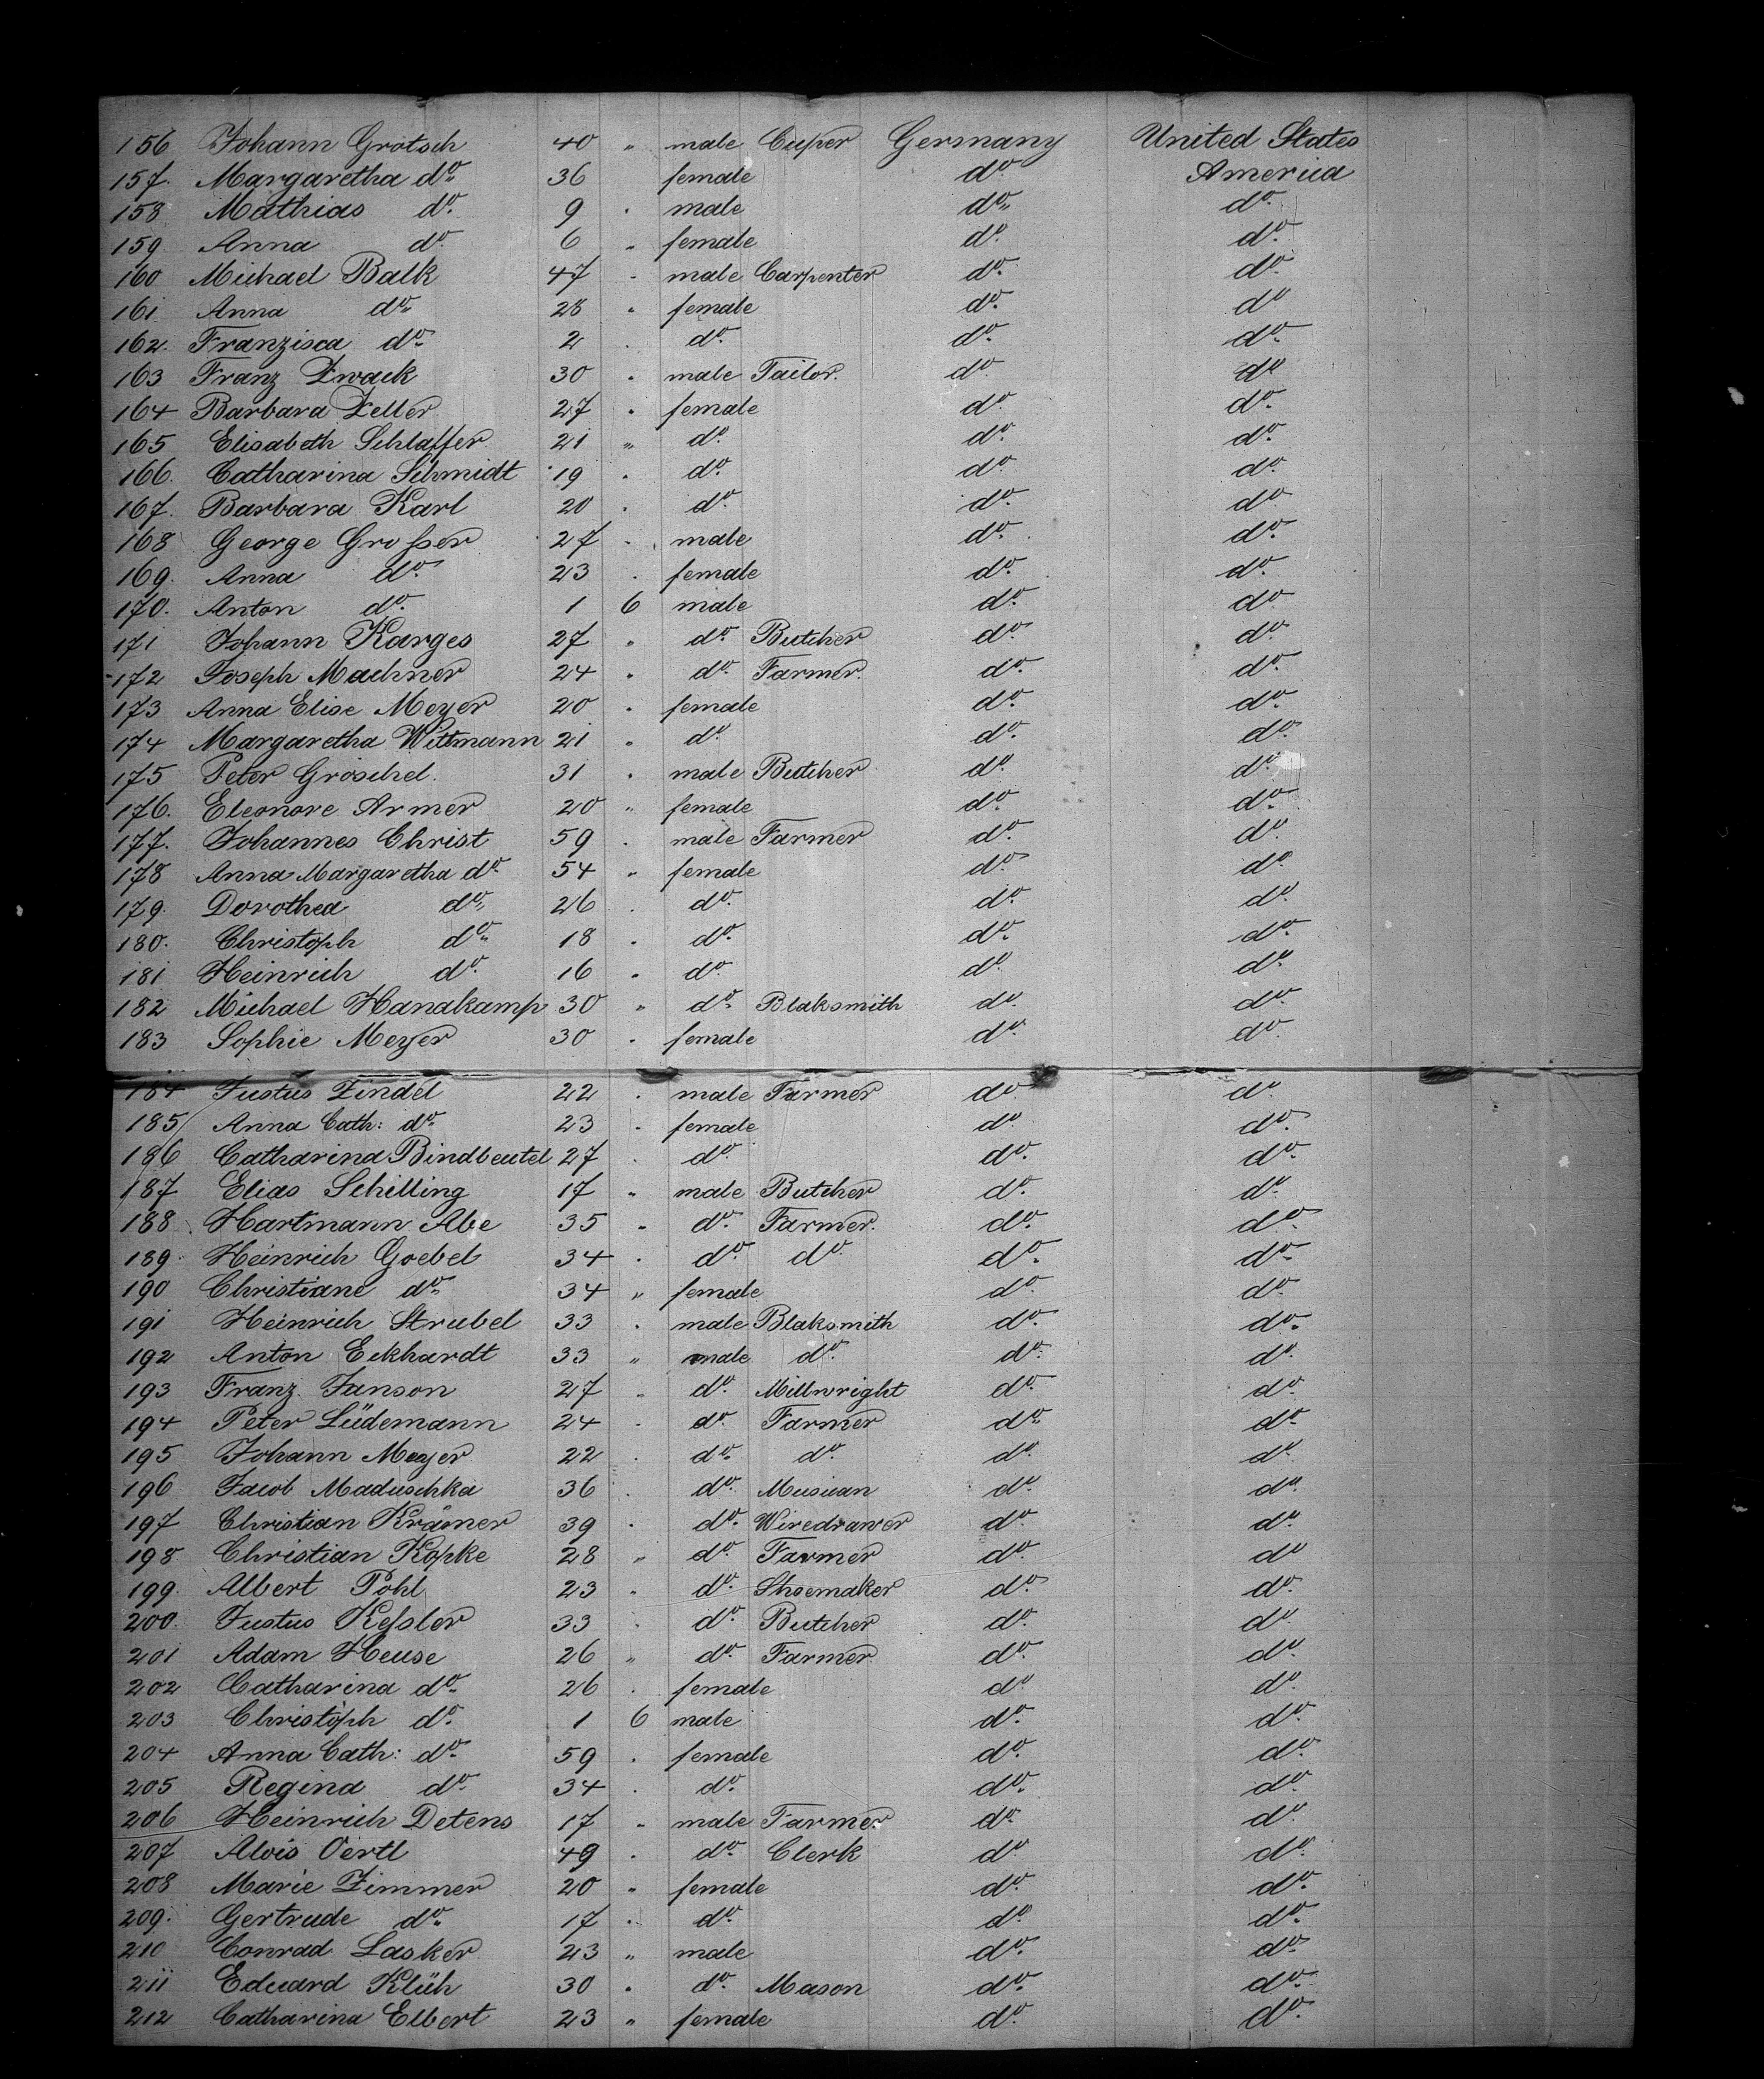 156 Johann Grötsch 40 " male Cuper Germany United States
157. Margaretha do. 36 female do. America
158 Mathias do. 9 " male do. do.
159. Anna do. 6 " female do. do.
160 Michael Balk 47 " male Carpenter do. do.
161 Anna do. 28 " female do. do.
162. Franzisca do. 2 . do. do. do.
163 Franz Zwack 30 " male Tailor. do. do.
164 Barbara Zeller 27 " female do. do.
165 Elisabeth Schlaffer 21 " do. do. do.
166. Catharina Schmidt 19 . do. do. do.
167. Barbara Karl 20 . do. do. do.
168 George Großer 27 . male do. do.
169. Anna do. 23 . female do. do.
170. Anton do. 1 6 male do. do.
171 Johann Karges 27 " do. Butcher do. do.
172 Joseph Machner 24 " do. Farmer. do. do.
173 Anna Elise Meyer 20 . female do. do.
174 Margaretha Wittmann 21 " do. do. do.
175 Peter Gröschel. 31 . male Butcher do. do.
176. Eleonore Armer 20 " female do. do.
177. Johannes Christ 59 . male Farmer do. do.
178 Anna Margaretha do. 54 " female do. do.
179. Dorothea do. 26 . do. do. do.
180. Christoph do. 18 . do. do. do.
181 Heinrich do. 16 " do. do. do.
182 Michael Hanakamp 30 " do. Blaksmith do. do.
183 Sophie Meyer 30 . female do. do.
184 Justus Zindel 22 . male Farmer do. do.
185 Anna Cath: do. 23 . female do. do.
186 Catharina Bindbeutel 27 . do. do. do.
187 Elias Schilling 17 " male Butcher do. do.
188 Hartmann Abe 35 " do. Farmer. do. do.
189. Heinrich Goebel 34 . do. do. do. do.
190 Christiane do. 34 " female do. do.
191 Heinrich Strubel 33 . male Blaksmith do. do.
192 Anton Eckhardt 33 " male do. do. do.
193 Franz Janson 27 " do. Millwright do. do.
194 Peter Lüdemann 24 . do. Farmer do. do.
195 Johann Meyer 22 . do. do. do. do.
196 Jacob Maduschka 36 . do. Musican do. do.
197 Christian Krämer 39 . do. Wiredrawer do. do.
198. Christian Köpke 28 " do. Farmer do. do.
199. Albert Pohl 23 " do. Shoemaker do. do.
200. Justus Keßler 33 . do. Butcher do. do.
201 Adam Heuse 26 " do. Farmer do. do.
202 Catharina do. 26 . female do. do.
203 Christoph do. 1 6 male do. do.
204 Anna Cath: do. 59 . female do. do.
205 Regina do. 34 . do. do. do.
206 Heinrich Detens 17 " male Farmer do. do.
207 Alois Oertl 49 . do. Clerk do. do.
208 Marie Zimmer 20 " female do. do.
209. Gertrude do. 17 . do. do. do.
210 Conrad Lasker 23 " male do. do.
211 Eduard Klüh 30 " do. Mason do. do.
212 Catharina Elbert 23 " female do. do.